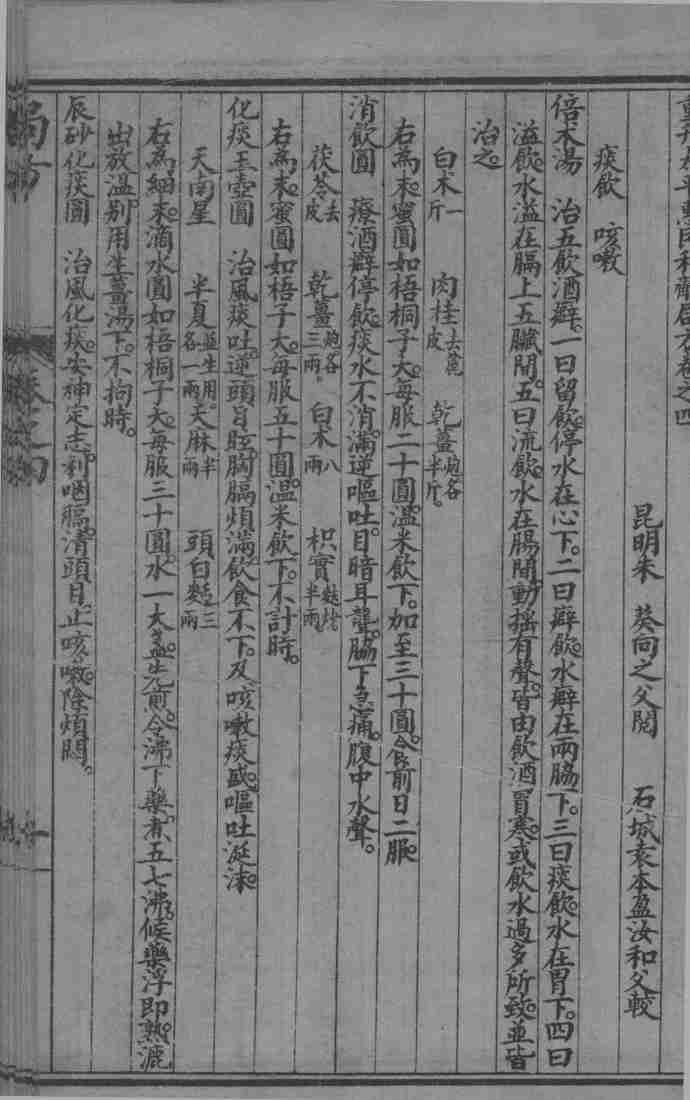 重刊太平惠民和劑局方卷之四
昆明朱 葵向之父閱 石城袁本盈汝和父較
痰飲 咳嗽
倍朮湯 治五飲酒癖。一曰留飲。停水在心下。二曰癖飲。水癖在兩脇下。三曰痰飲。水在胃下。四曰
溢飲。水溢在膈上五臟間。五曰流飲。水在腸間。動搖有聲。皆由飲酒冒寒。或飲水過多所致。並皆
治之。
白朮一斤 肉桂去麄皮 乾薑炮各半斤。
右為末。蜜圓如梧桐子大。每服二十圓。溫米飲下。加至三十圓。食前日二服。
消飲圓 療酒癖停飲。痰水不消。滿逆嘔吐。目暗耳聾。脇下急痛。腹中水聲。
茯苓去皮 乾薑炮各三兩。 白朮八兩 枳實麩炒半兩
右為末。蜜圓如梧子大。每服五十圓。溫米飲下。不計時。
化痰玉壺圓 治風痰吐逆。頭目眩。胸膈煩滿。飲食不下。及咳嗽痰盛。嘔吐涎沫。
天南星 半夏並生用。各一兩 天麻半兩 頭白麵三兩
右為細末。滴水圓如梧桐子大。每服三十圓。水一大盞。先煎令沸下藥。煮五七沸。候藥浮即熟。漉
出放溫。別用生薑湯下。不拘時。
辰砂化痰圓 治風化痰。安神定志。利咽膈。清頭目。止咳嗽。除煩悶。
局方 卷之四